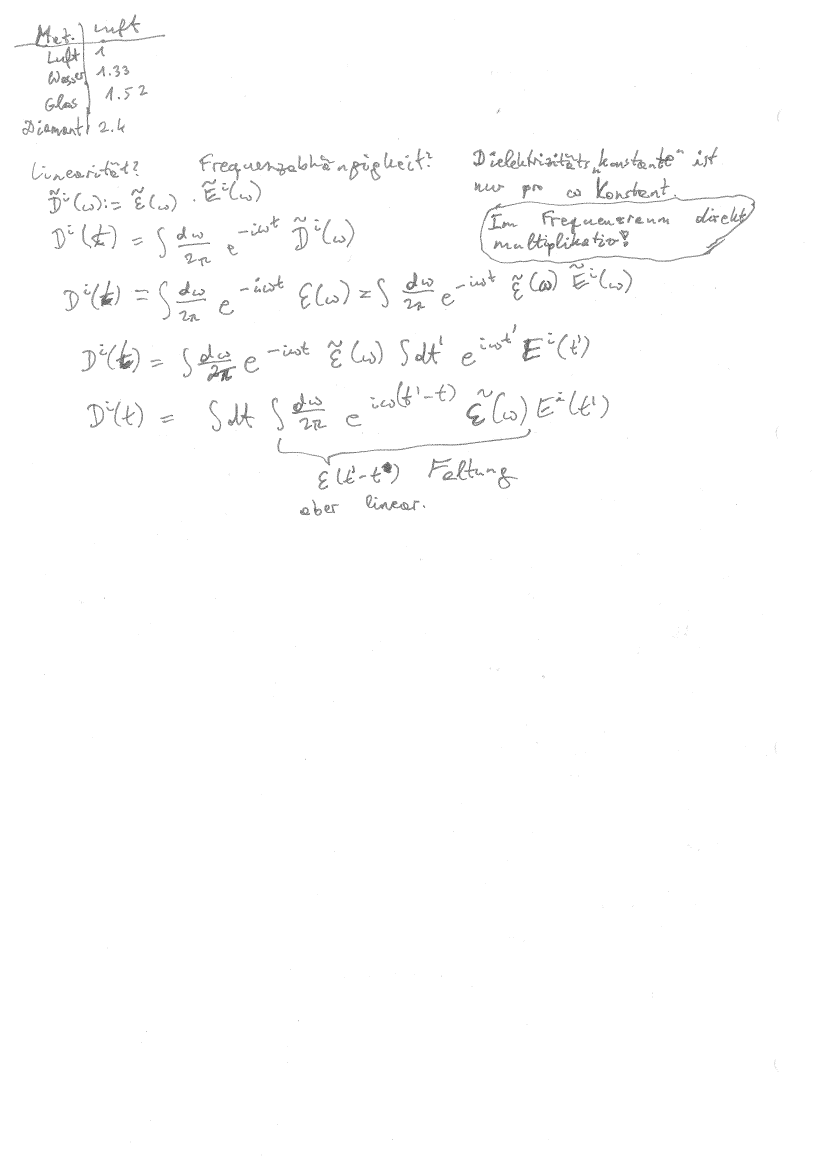 Met. | Luft
Luft | 1
Wasser | 1.33
Glas | 1.52
Diamant | 2.4
Linearität? Frequenzabhängigkeit? Dielektrizitäts„konstante" ist
nur pro ω Konstant.
D̃ⁱ(ω) := ε̃(ω) · Ẽⁱ(ω)
Im Frequenzraum direkt
multiplikativ!
Dⁱ(t) = ∫ dω/2π e^{-iωt} D̃ⁱ(ω)
Dⁱ(t) = ∫ dω/2π e^{-iωt} ε(ω) = ∫ dω/2π e^{-iωt} ε̃(ω) Ẽⁱ(ω)
Dⁱ(t) = ∫ dω/2π e^{-iωt} ε̃(ω) ∫dt' e^{iωt'} Eⁱ(t')
Dⁱ(t) = ∫dt ∫ dω/2π e^{iω(t'-t)} ε̃(ω) Eⁱ(t')
ε(t'-t) Faltung
aber linear.